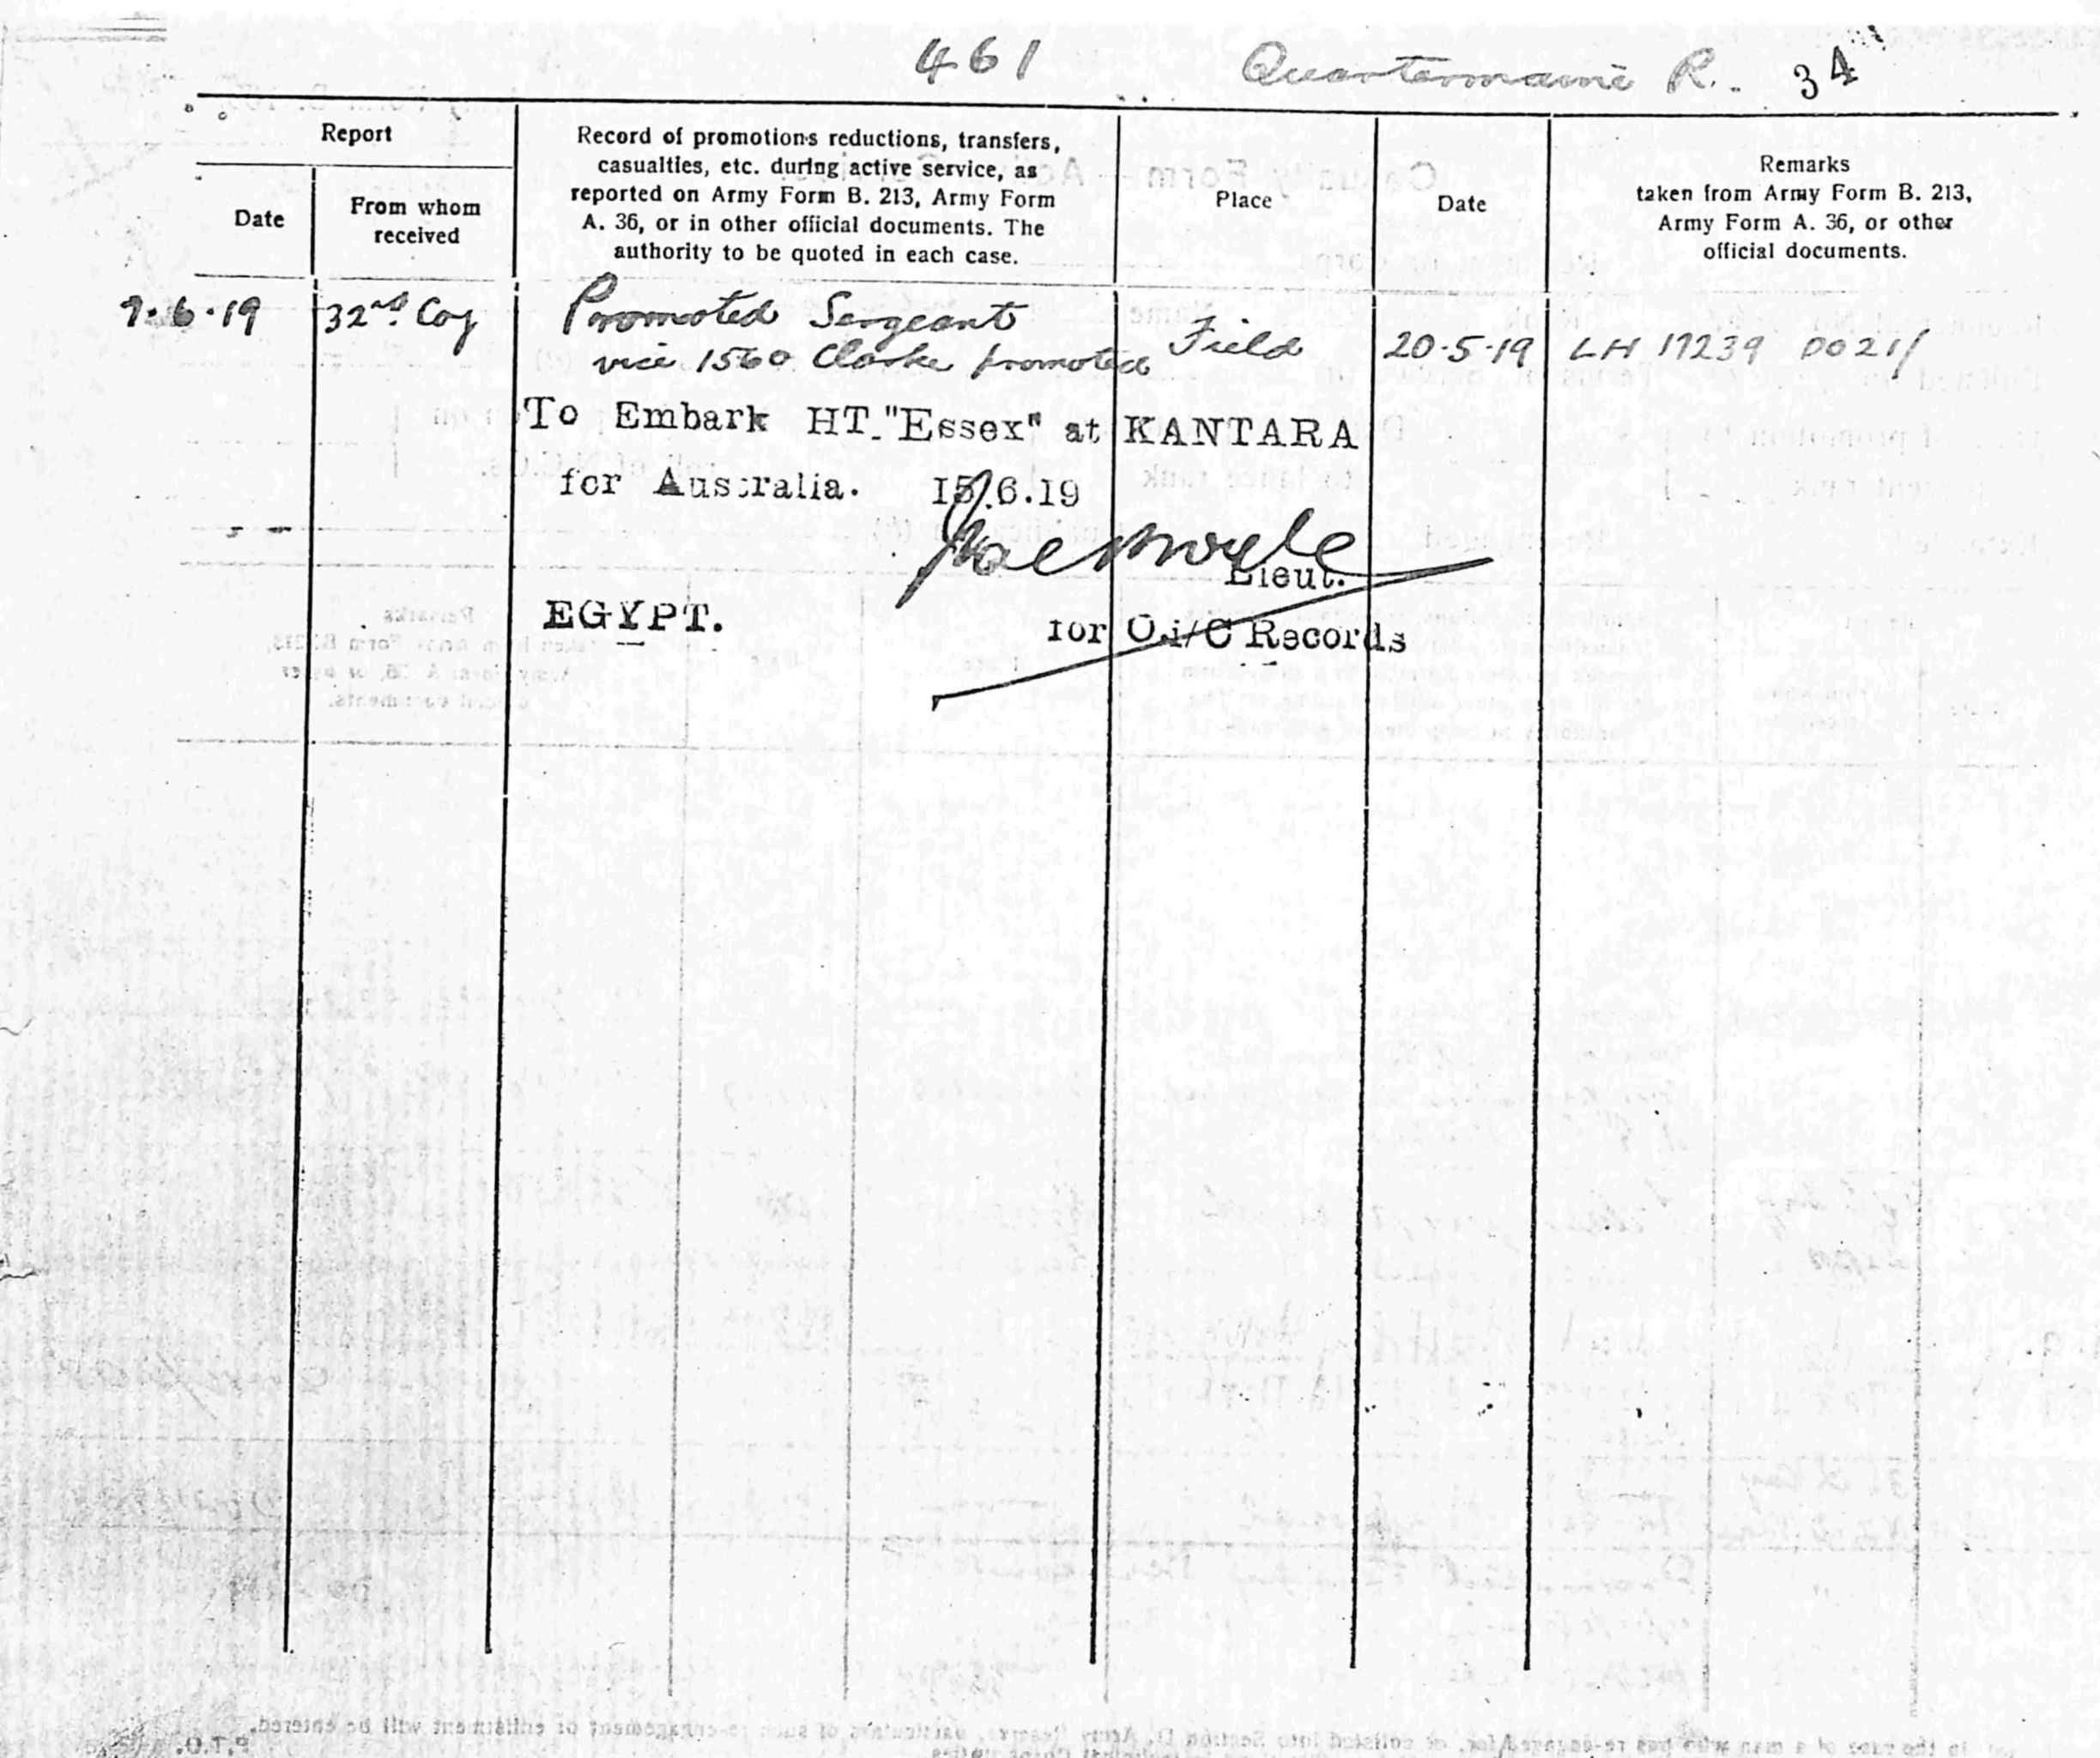 461 Quartermaine R. 34
Report
Date
From whom
received
Record of promotions reductions, transfers,
casualties, etc. during active service, as
reported on Army Form B. 213, Army Form
A. 36, or in other official documents. The
authority to be quoted in each case.
Place
Date
Remarks
taken from Army Form B. 213,
Army Form A. 36, or other
official documents.
9.6.19 32nd Coy Promoted Sergeant
vice 1560 Clarke promoted Field 20.5.19 LH 17239 DO21/
To Embark HT."Essex" at KANTARA
for Australia. 15.6.19
Lieut.
EGYPT. for O.i/C Records